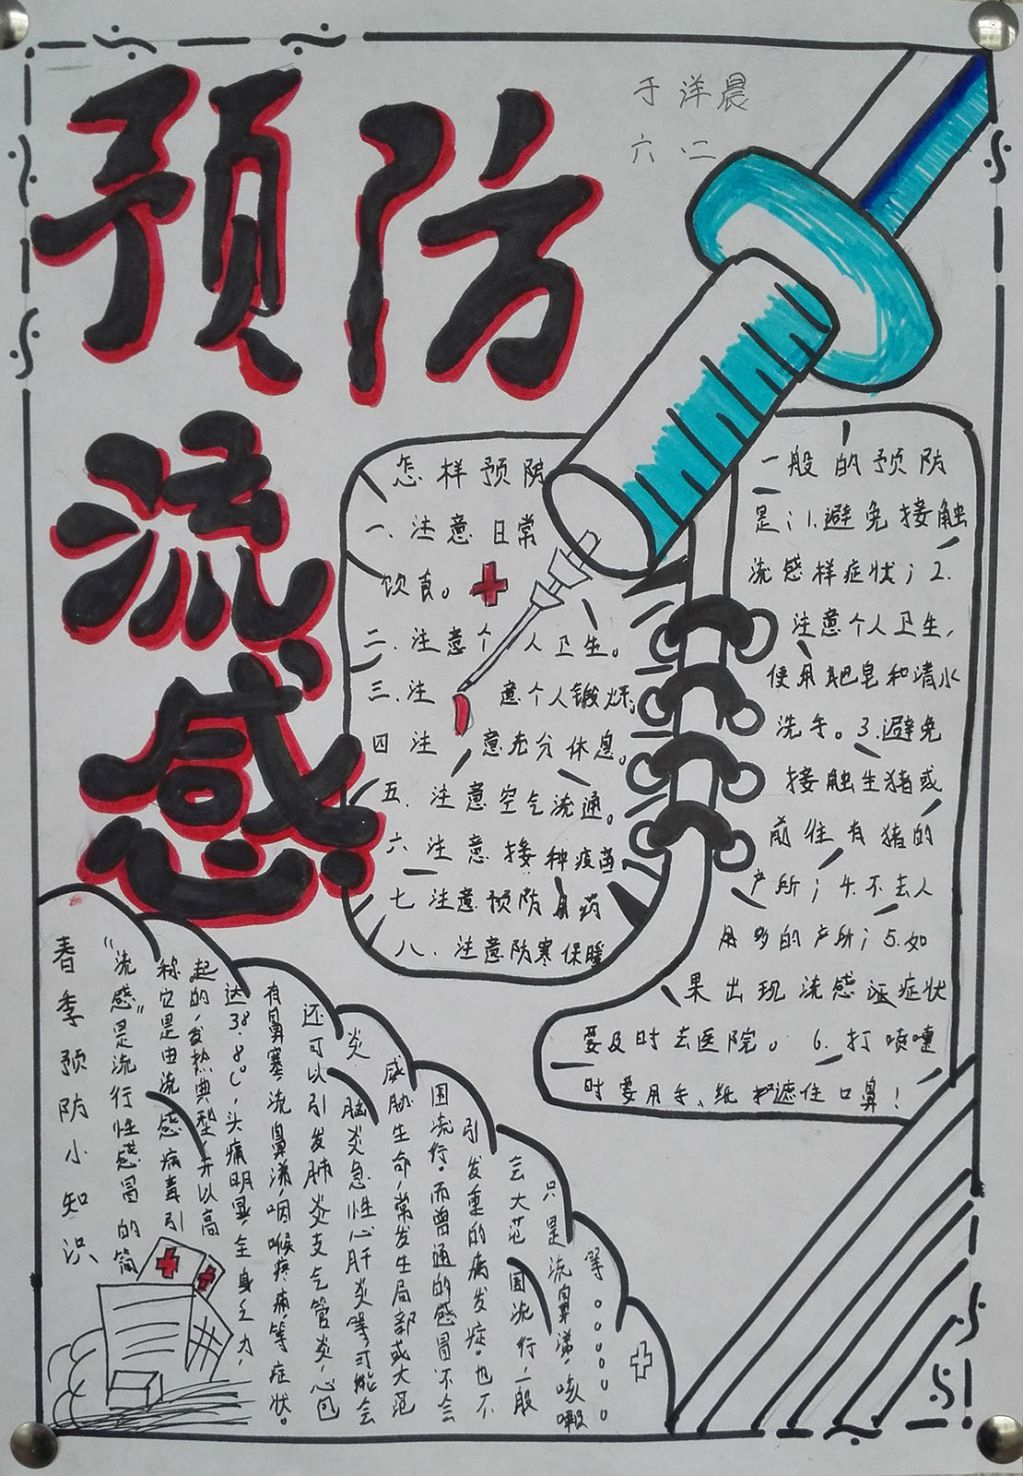 预防
流感
于洋晨
六.二
怎样预防
一.注意日常
饮食。
二.注意个人卫生。
三.注意个人锻炼。
四注意充分休息。
五.注意空气流通。
六注意接种疫苗
七注意预防用药
八.注意防寒保暖
一般的预防
是：1.避免接触
流感样症状；2.
注意个人卫生,
使用肥皂和清水
洗手。3.避免
接触生猪或
前往有猪的
户所；4.不去人
用多的户所；5.如
果出现流感证症状
要及时去医院。6.打喷嚏
时要用手、纸把遮住口鼻！
春季预防小知识
“流感”是流行性感冒的简
称它是由流感病毒引
起的,发热典型并以高
达38.8℃,头痛明显,全身乏力,
有鼻塞,流鼻涕,咽喉疼痛,等症状。
还可以引发肺炎支气管炎,心包
炎脑炎急性心肝炎等,可能会
威胁生命,常发生局部或大范
围流行。而普通的感冒不会
引发重的病发症。也不
会大范围流行,一般
只是流鼻涕,咳嗽
等。。。。。。